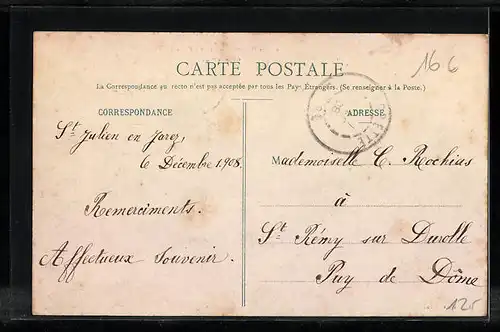 166
CARTE POSTALE
La Correspondance au recto n'est pas acceptée par tous les Pays Étrangers. (Se renseigner à la Poste.)
CORRESPONDANCE
St Julien en Jarez,
6 Décembre 1908.
Remerciments.
Affectueux Souvenir.
ADRESSE
Mademoiselle C. Rochias
à
St Rémy sur Durolle
Puy de Dôme
125